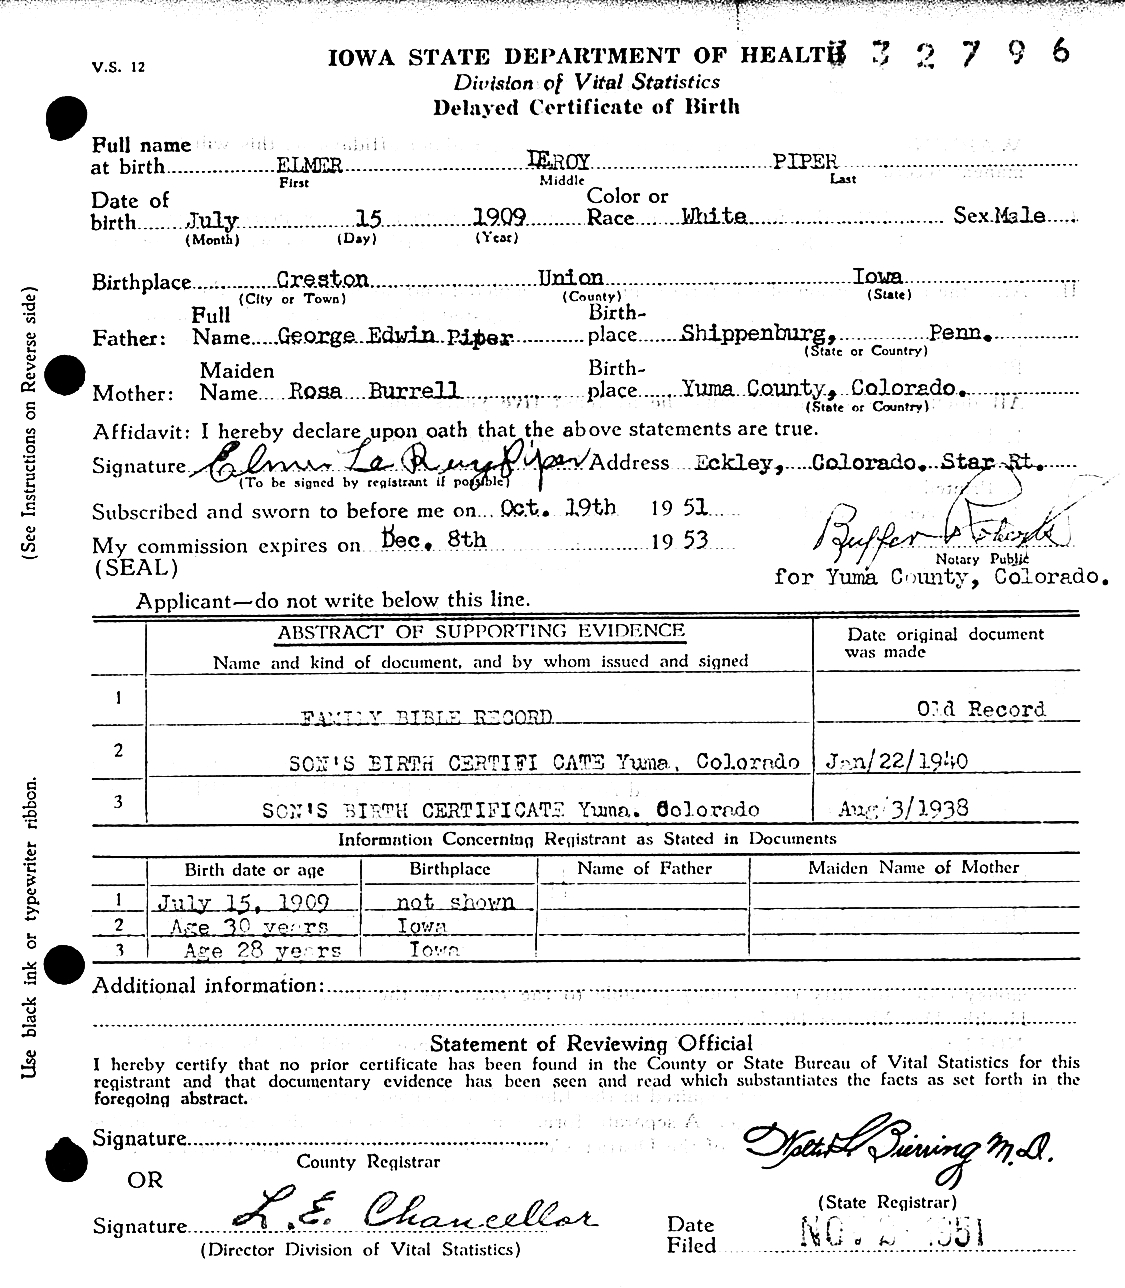 V.S. 12
IOWA STATE DEPARTMENT OF HEALTH 32796
Division of Vital Statistics
Delayed Certificate of Birth
Full name
at birth ELMER LEROY PIPER
First Middle Last
Date of birth July 15 1909 Color or Race White Sex Male
(Month) (Day) (Year)
Birthplace Creston Union Iowa
(City or Town) (County) (State)
Father: Full Name George Edwin Piper Birth-place Shippenburg, Penn.
(State or Country)
Mother: Maiden Name Rosa Burrell Birth-place Yuma County, Colorado.
(State or Country)
Affidavit: I hereby declare upon oath that the above statements are true.
Signature Elmer Le Roy Piper Address Eckley, Colorado. Star Rt.
(To be signed by registrant if possible)
Subscribed and sworn to before me on Oct. 19th 19 51
My commission expires on Dec. 8th 19 53
Notary Public
(SEAL) for Yuma County, Colorado.
Applicant—do not write below this line.
ABSTRACT OF SUPPORTING EVIDENCE
Name and kind of document, and by whom issued and signed
Date original document was made
1 FAMILY BIBLE RECORD Old Record
2 SON'S BIRTH CERTIFI CATE Yuma, Colorado Jan/22/1940
3 SON'S BIRTH CERTIFICATE Yuma. Colorado Aug/3/1938
Information Concerning Registrant as Stated in Documents
Birth date or age Birthplace Name of Father Maiden Name of Mother
1 July 15, 1909 not shown
2 Age 30 years Iowa
3 Age 28 years Iowa
Additional information:
Statement of Reviewing Official
I hereby certify that no prior certificate has been found in the County or State Bureau of Vital Statistics for this
registrant and that documentary evidence has been seen and read which substantiates the facts as set forth in the
foregoing abstract.
Signature
County Registrar
Walter L. Bierring M.D.
OR
(State Registrar)
Signature L. E. Chancellor
(Director Division of Vital Statistics)
Date Filed 1951
(See Instructions on Reverse side)
Use black ink or typewriter ribbon.